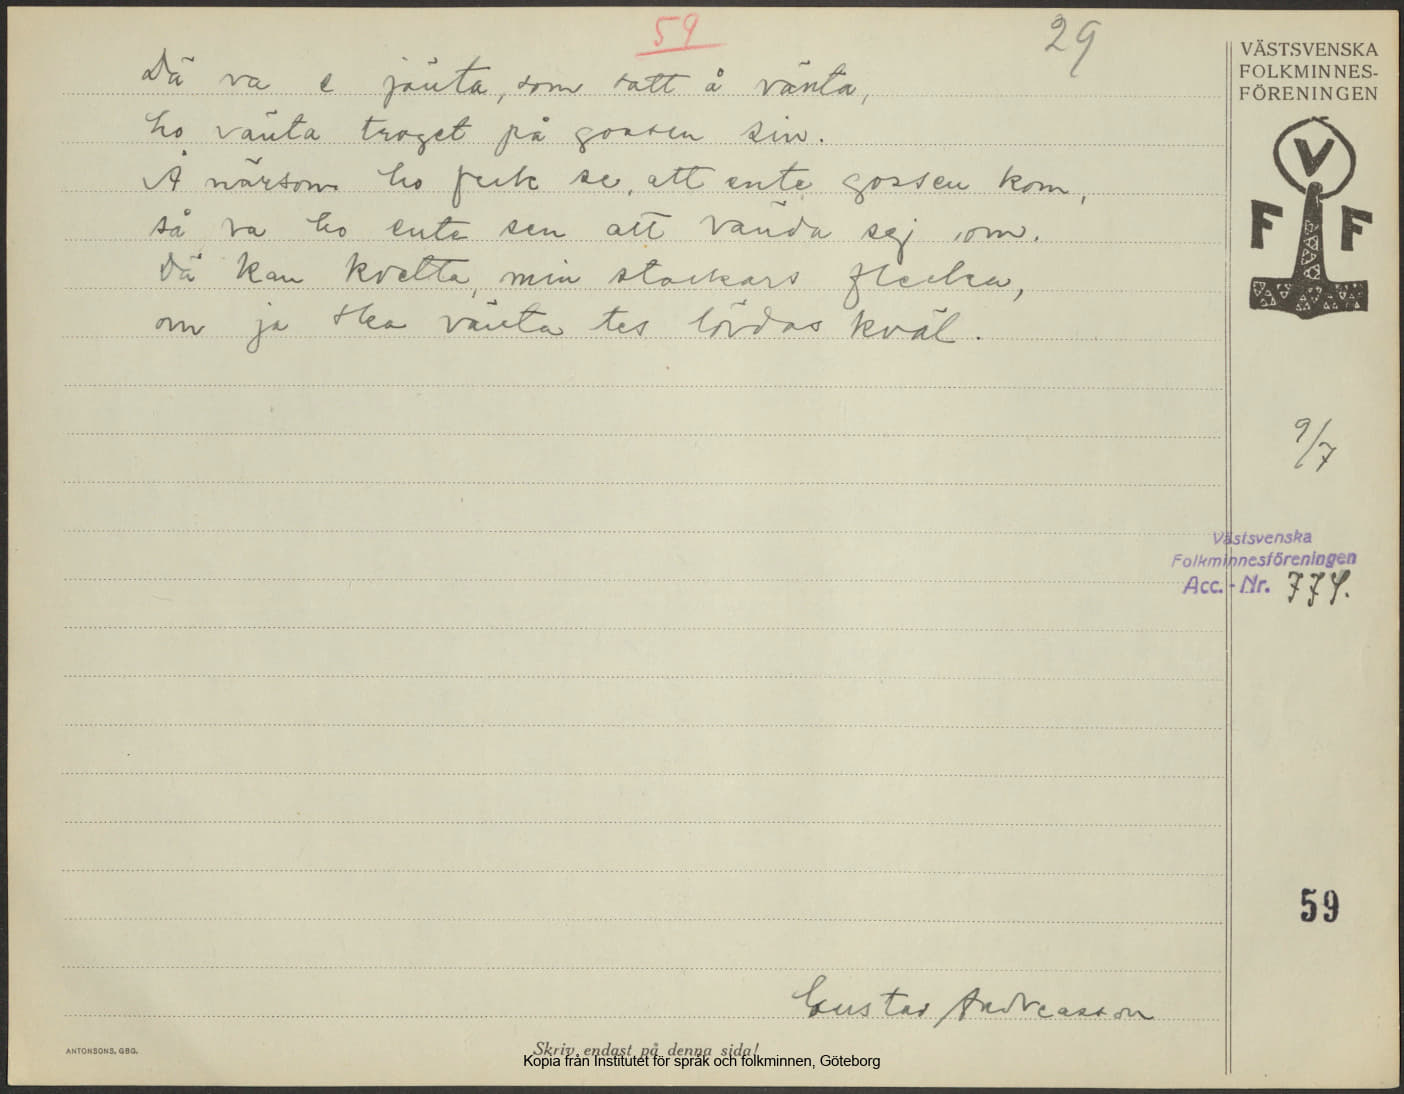 59
29
Dä va e jänta, som satt å vänta,
ho vänta troget på gossen sin.
Å närsom ho feck se, att ente gossen kom,
så va ho ente sen att vända sej om.
Dä kan kvetta, min stackars flecka,
om ja ska vänta tes lördas kväl.
VÄSTSVENSKA
FOLKMINNES-
FÖRENINGEN
V
F F
9/7
Västsvenska
Folkminnesföreningen
Acc. - Nr. 774.
59
Gustav Andreasson
ANTONSONS, GBG.
Skriv endast på denna sida!
Kopia från Institutet för språk och folkminnen, Göteborg